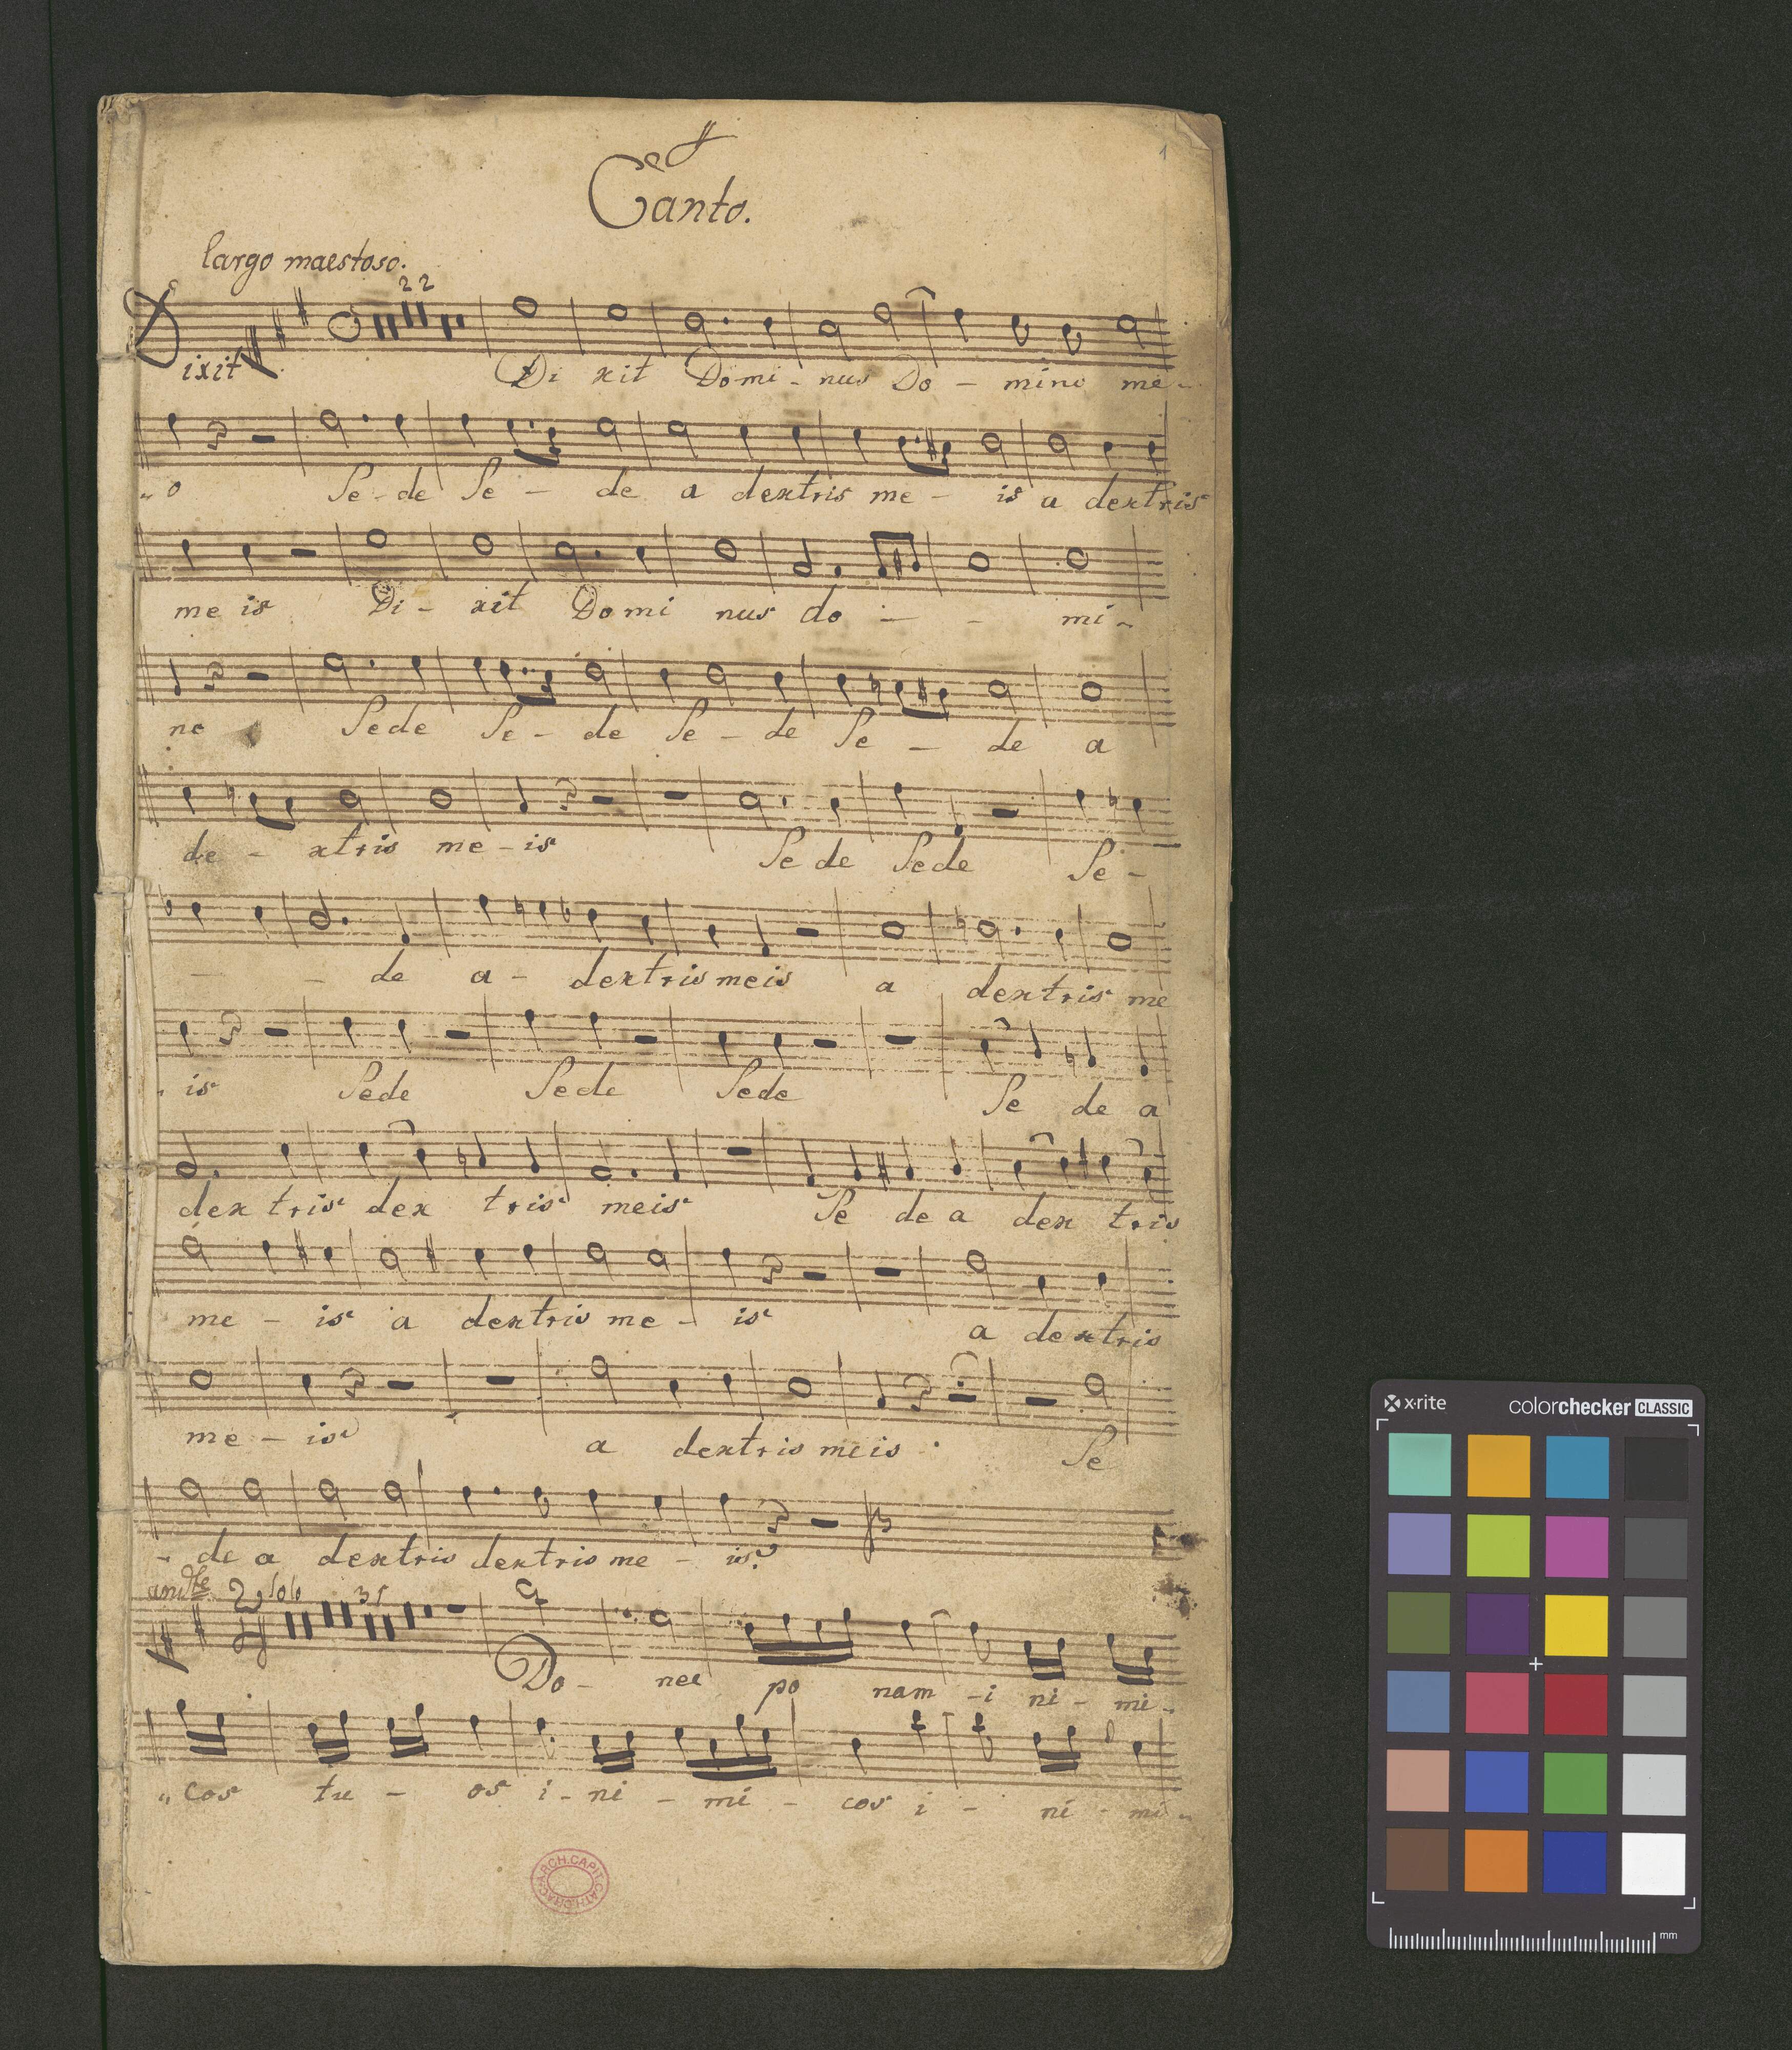 1
Canto.
largo maestoso.
2 2
Dixit
Di xit Domi - nus Do - mino me -
„o Se - de Se - de a dextris me - is a dextris
me is Di - xit Domi nus do - - mi -
no Sede Se - de Se - de Se - de a
de - xtris me - is Se de Sede Se -
- - de a - dextris meis a dextris me
- is Sede Sede Sede Se de a
dex tris dex tris meis Se de a dex tris
me - is a dextris me - is a dextris
me - is a dextris meis . Se
- de a dextris dextris me - is.
and.te solo 35
Do - nec po nam - i ni - mi -
„cos tu - os i - ni - mi - cos i - ni - mi -
ARCH. CAPIT. CATH. CRAC.
x-rite
colorchecker CLASSIC
mm